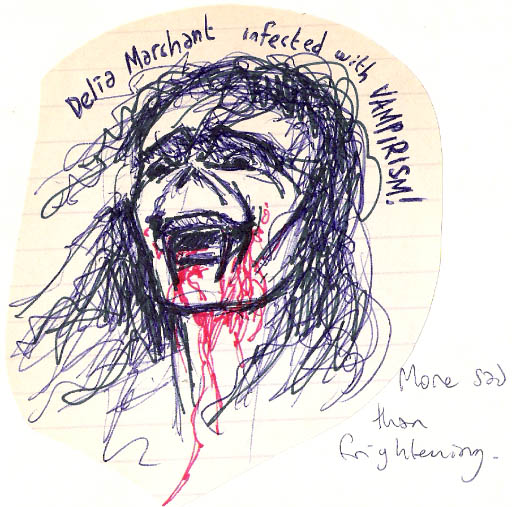 Delia Marchant infected with VAMPIRISM!
More sad
than
frightening.